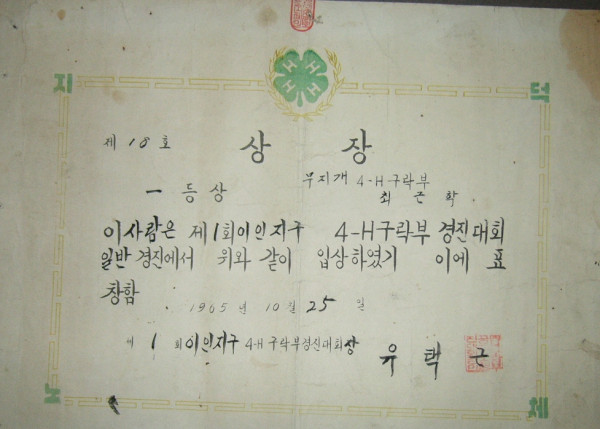 지 덕
H H H H
제 18 호
상 장
무지개 4-H구락부
一 등상 최 근 학
이사람은 제1회이인지구 4-H구락부 경진대회
일반 경진에서 위와 같이 입상하였기 이에 표
창함
1965년 10월 25일
제 1 회이인지구 4-H 구락부경진대회장
유 택 근
노 체